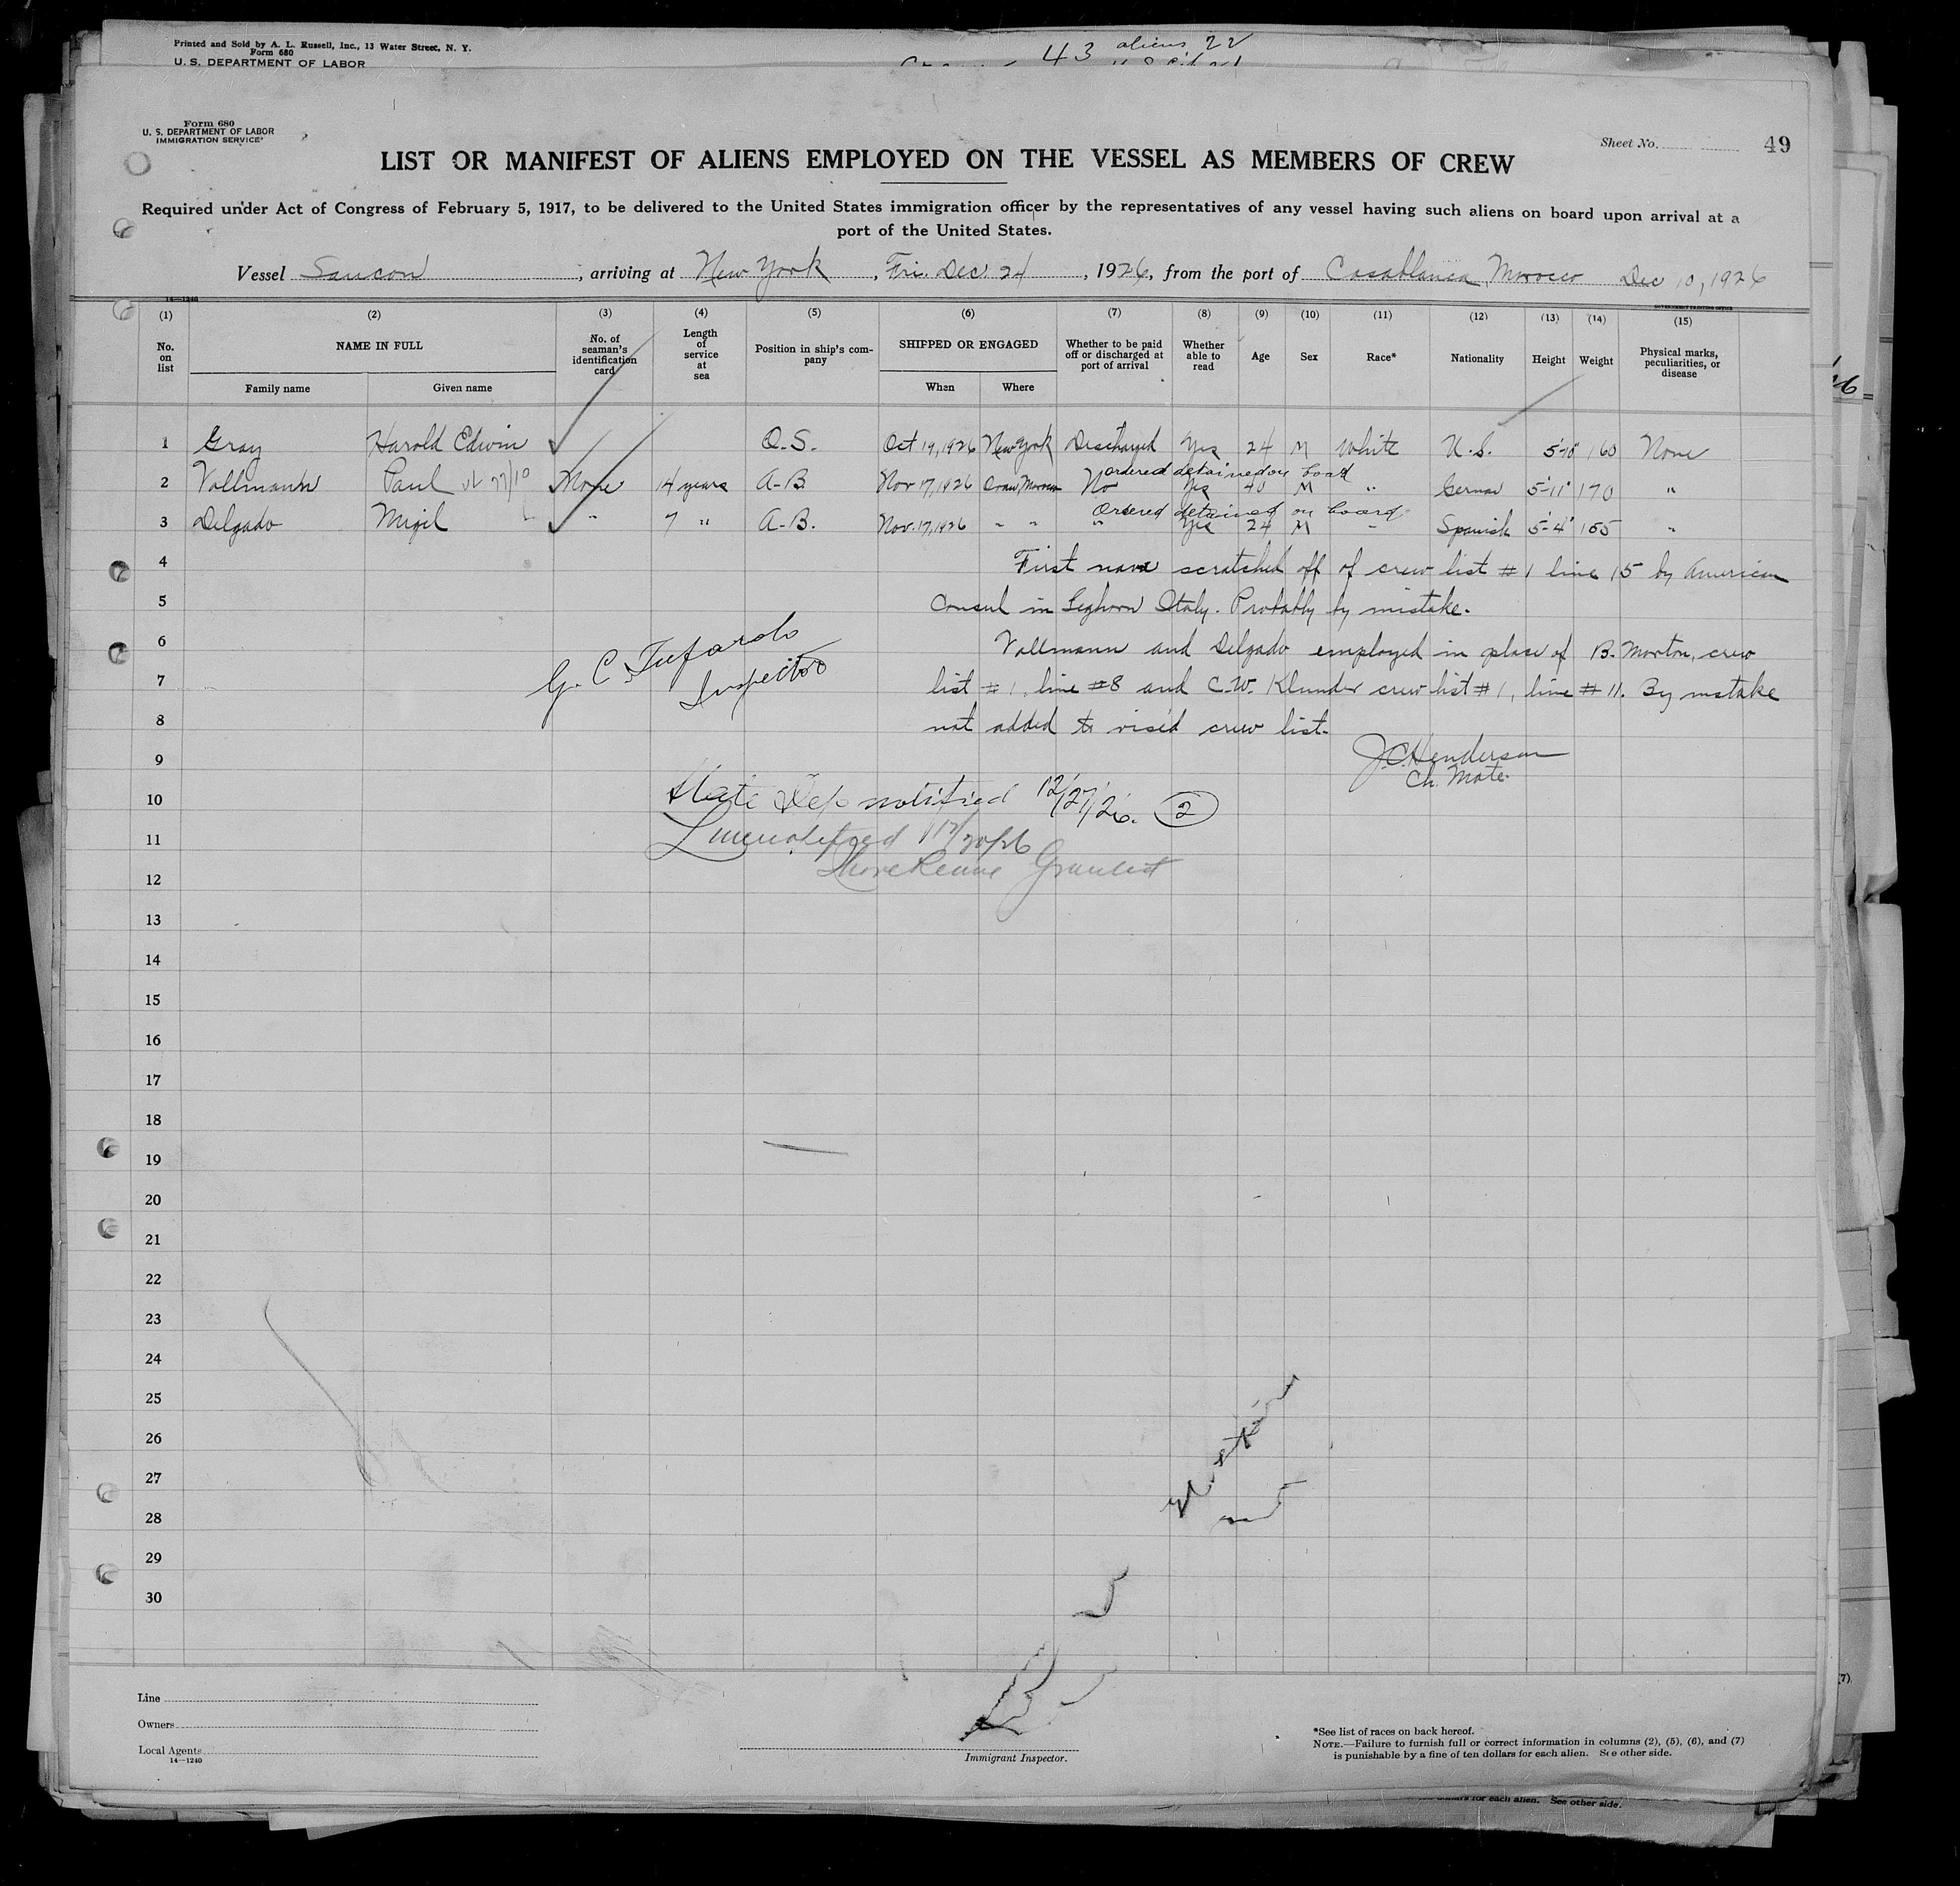 Printed and Sold by A. L. Russell, Inc., 13 Water Street, N. Y.
Form 680
U. S. DEPARTMENT OF LABOR
43 aliens 22
Form 680
U. S. DEPARTMENT OF LABOR
IMMIGRATION SERVICE
Sheet No. 49
LIST OR MANIFEST OF ALIENS EMPLOYED ON THE VESSEL AS MEMBERS OF CREW
Required under Act of Congress of February 5, 1917, to be delivered to the United States immigration officer by the representatives of any vessel having such aliens on board upon arrival at a
port of the United States.
Vessel Saucon, arriving at New York, Fri. Dec 24, 1926, from the port of Casablanca, Morocco Dec 10, 1926
14—1240
GOVERNMENT PRINTING OFFICE
(1) (2) (3) (4) (5) (6) (7) (8) (9) (10) (11) (12) (13) (14) (15)
No. on list
NAME IN FULL
Family name
Given name
No. of seaman's identification card
Length of service at sea
Position in ship's company
SHIPPED OR ENGAGED
When
Where
Whether to be paid off or discharged at port of arrival
Whether able to read
Age
Sex
Race*
Nationality
Height
Weight
Physical marks, peculiarities, or disease
1 Gray Harold Edwin O.S. Oct 19, 1926 New York Discharged Yes 24 M White U.S. 5'-10" 160 None
ordered detained on board
2 Vollmann Paul None 14 years A-B Nov 17, 1926 No Yes 40 M " German 5'-11" 170 "
Ordered detained on board
3 Delgado Migil " 7 " A-B. Nov. 17, 1926 " " " Yes 24 M " Spanish 5'-4" 155 "
4 First name scratched off of crew list #1 line 15 by American
5 Consul in Leghorn Italy. Probably by mistake.
6 Vollmann and Delgado employed in place of B. Morton, crew
G. C. Tufarolo
Inspector
7 list #1, line #8 and C.W. Klunder crew list #1, line #11. By mistake
8 not added to visé'd crew list.
9 J.C. Henderson
Ch. Mate.
10 State Dep notified 12/27/26. 2
11
12 Granted
13
14
15
16
17
18
19
20
21
22
23
24
25
26
27
28
29
30
Line
Owners
Local Agents
14—1240
Immigrant Inspector.
*See list of races on back hereof.
NOTE.—Failure to furnish full or correct information in columns (2), (5), (6), and (7)
is punishable by a fine of ten dollars for each alien. See other side.
for each alien. See other side.